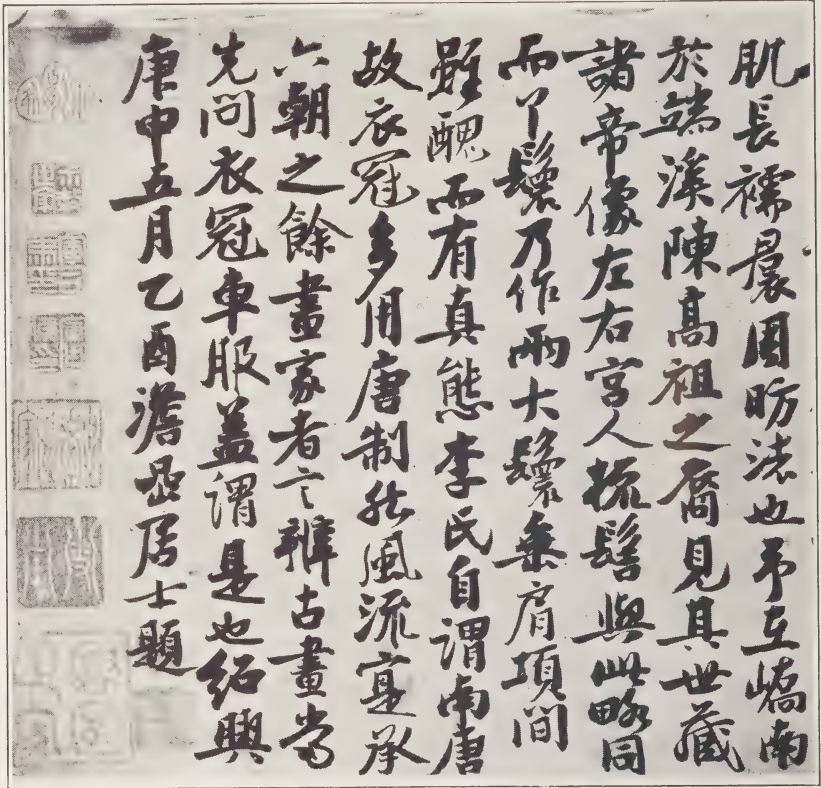 肌長襦曩周昉法也予在嶠南
於端溪陳高祖之裔見其世藏
諸帝像左右宮人梳髻與此略同
而丫鬟乃作兩大鬟垂肩項間
雖醜而有真態李氏自謂南唐
故衣冠多用唐制然風流寔承
六朝之餘畫家者言辨古畫當
先問衣冠車服蓋謂是也紹興
庚申五月乙酉澹嵓居士題